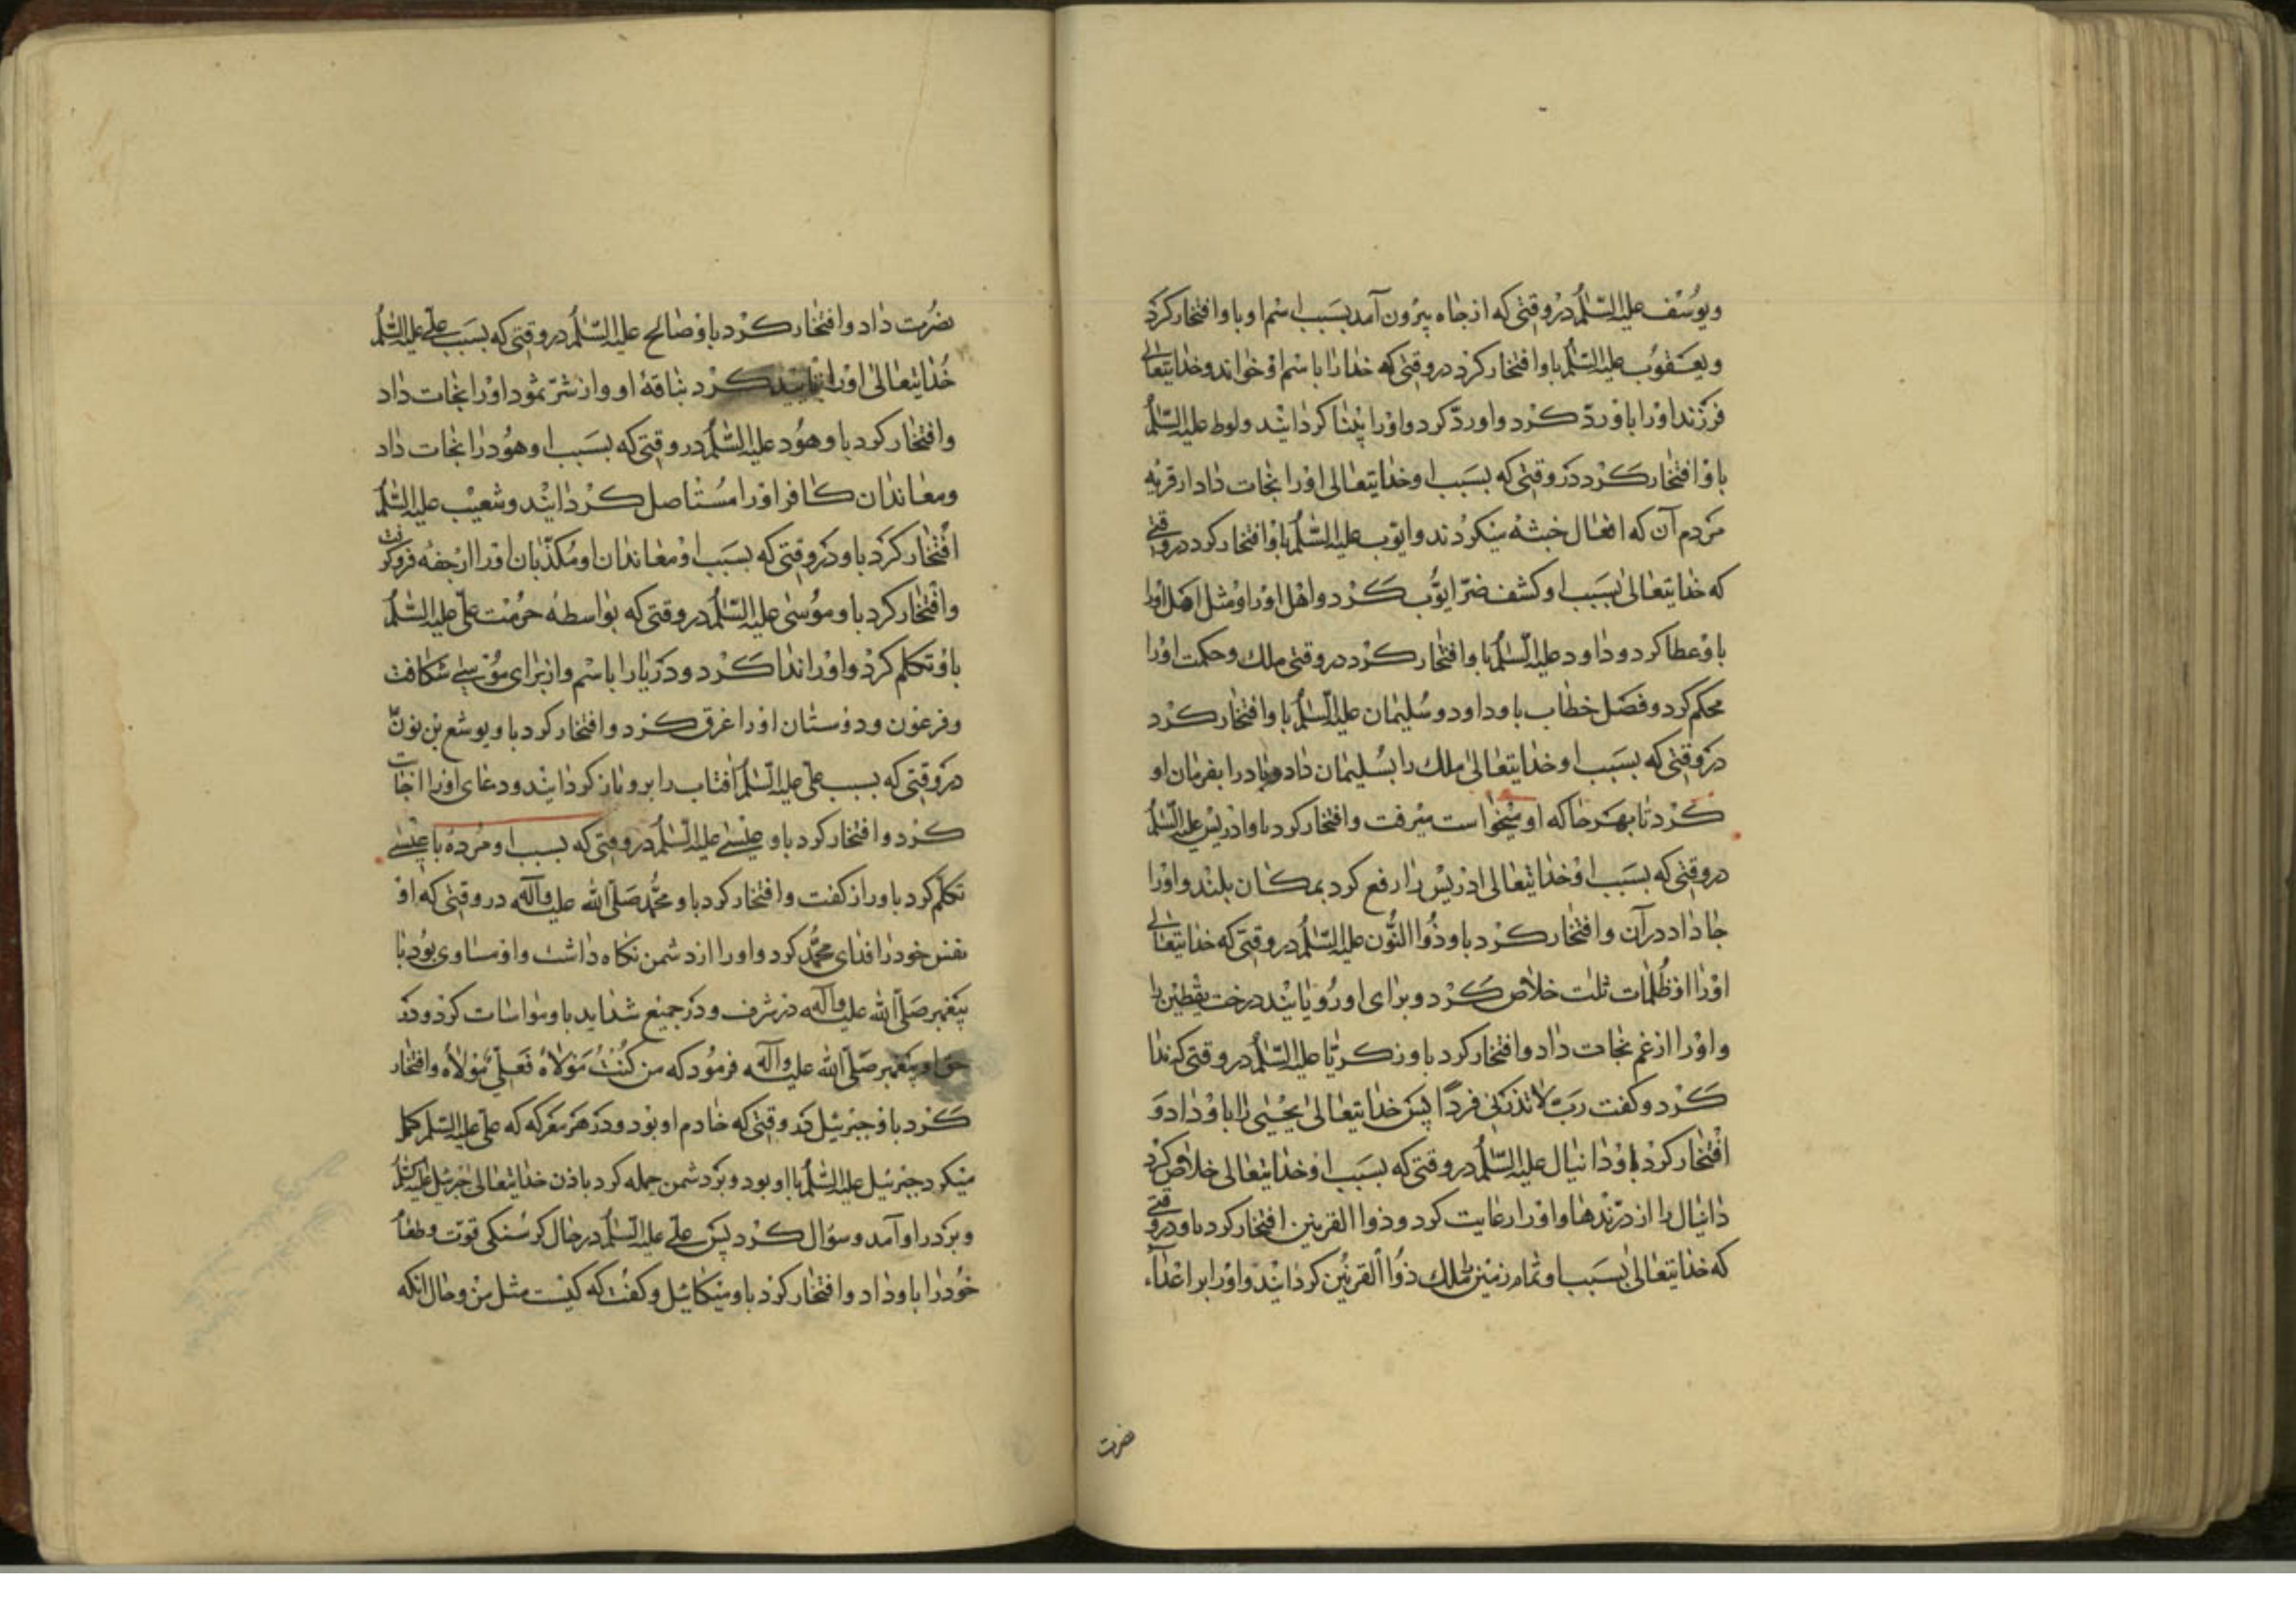 ویوسف علیه السلام در وقتی که از چاه بیرون آمد بسبب اسم او باو افتخار کرد
ویعقوب علیه السلام باو افتخار کرد در وقتی که خدا را باسم او خواند وخدایتعالی
فرزند او را باو رد کرد واو رد کرد واو را بینا کردانید ولوط علیه السلام
باو افتخار کرد در وقتی که بسبب او خدایتعالی او را نجات داد از قریه
مردم آن که افعال خبثه میکردند وایوب علیه السلام باو افتخار کرد در وقتی
که خدایتعالی بسبب او کشف ضر ایوب کرد واهل او را ومثل اهل او را
باو عطا کرد وداود علیه السلام باو افتخار کرد در وقتی ملک وحکمت او را
محکم کرد وفصل خطاب باو داود وسلیمان علیه السلام باو افتخار کرد
در وقتی که بسبب او خدایتعالی ملک را بسلیمان داد وباد را بفرمان او
کرد تا بهر جا که او میخواست میرفت وافتخار کرد باو ادریس علیه السلام
در وقتی که بسبب او خدایتعالی ادریس را رفع کرد بمکان بلند واو را
جا داد در آن وافتخار کرد باو ذوا النون علیه السلام در وقتی که خدایتعالی
او را از ظلمات ثلث خلاص کرد وبرای او رویانید درخت یقطین را
واو را از غم نجات داد وافتخار کرد باو زکریا علیه السلام در وقتی که ندا
کرد وکفت رب لا تذرنی فردا پس خدایتعالی یحیی را باو داد و
افتخار کرد باو دانیال علیه السلام در وقتی که بسبب او خدایتعالی خلاص کرد
دانیال را از درندها واو را رعایت کرد وذوا القرنین افتخار کرد باو در وقتی
که خدایتعالی بسبب او تمام زمین ملک ذوا القرنین کردانید واو را بر اعداء
نضرت
نضرت داد وافتخار کرد باو صالح علیه السلام در وقتی که بسبب علی علیه السلام
خدایتعالی او را تایید کرد بناقهٔ او واز شر ثمود او را نجات داد
وافتخار کرد باو هود علیه السلام در وقتی که بسبب او هود را نجات داد
ومعاندان کافر او را مستاصل کردانید وشعیب علیه السلام
افتخار کرد باو در وقتی که بسبب او معاندان او مکذبان او را رجفه فرو کرفت
وافتخار کرد باو موسی علیه السلام در وقتی که بواسطه حرمت علی علیه السلام
باو تکلم کرد واو را ندا کرد ودریا را باسم واز برای موسی شکافت
وفرعون ودوستان او را غرق کرد وافتخار کرد باو یوشع بن نون
در وقتی که بسبب علی علیه السلام آفتاب را برو باز کردانید ودعای او را اجابت
کرد وافتخار کرد باو عیسی علیه السلام در وقتی که بسبب او مرده با عیسی
تکلم کرد باو راز کفت وافتخار کرد باو محمد صلی الله علیه وآله در وقتی که او
نفس خود را فدای محمد کرد واو را از دشمن نکاه داشت واو مساوی بود با
پیغمبر صلی الله علیه وآله در شرف ودر جمیع شداید باو مواسات کرد ودر
حق او پیغمبر صلی الله علیه وآله فرمود که من کنت مولاه فعلی مولاه وافتخار
کرد باو جبرئیل در وقتی که خادم او بود ودر هر معرکه که علی علیه السلام حمله
میکرد جبرئیل علیه السلام با او بود وبر دشمن حمله کرد باذن خدایتعالی جبرئیل علیه السلام
وبر در او آمد وسؤال کرد پس علی علیه السلام در حال کرسنکی قوت وطعام
خود را باو داد وافتخار کرد باو میکائیل وکفت که کیست مثل من وحال انکه